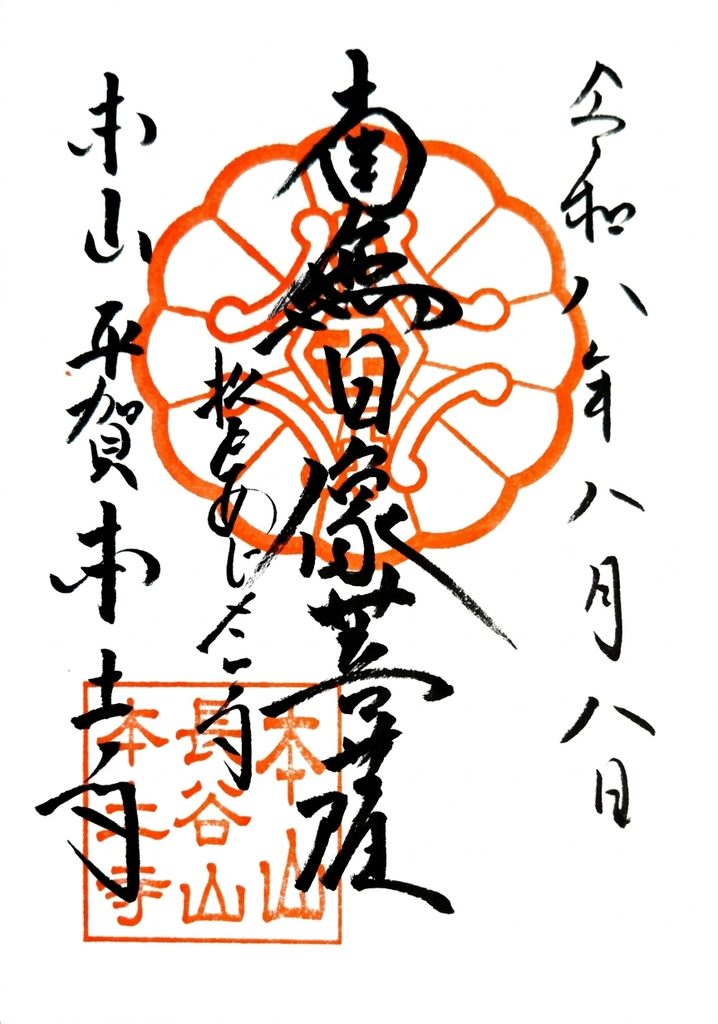 令和八年八月八日
南無日像菩薩
松戸あじさい寺
本山 平賀 本土寺
本山
長谷山
本土寺